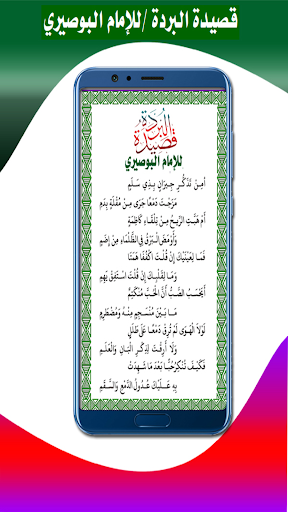 قصيدة البردة /للإمام البوصيري
قصيدة البردة
للإمام البوصيري
أمِنْ تَذَكُّرِ جِيرَانٍ بِذِي سَلَمٍ
مَزَجْتَ دَمْعًا جَرَى مِنْ مُقْلَةٍ بِدَمِ
أَمْ هَبَّتِ الرِّيحُ مِنْ تِلْقَاءِ كَاظِمَةٍ
وَأَوْمَضَ الْبَرْقُ فِي الظَّلْمَاءِ مِنْ إِضَمِ
فَمَا لِعَيْنَيْكَ إِنْ قُلْتَ اكْفُفَا هَمَتَا
وَمَا لِقَلْبِكَ إِنْ قُلْتَ اسْتَفِقْ يَهِمِ
أَيَحْسَبُ الصَّبُّ أَنَّ الْحُبَّ مُنْكَتِمٌ
مَا بَيْنَ مُنْسَجِمٍ مِنْهُ وَمُضْطَرِمِ
لَوْلَا الْهَوَى لَمْ تُرِقْ دَمْعًا عَلَى طَلَلٍ
وَلَا أَرِقْتَ لِذِكْرِ الْبَانِ وَالْعَلَمِ
فَكَيْفَ تُنْكِرُ حُبًّا بَعْدَ مَا شَهِدَتْ
بِهِ عَلَيْكَ عُدُولُ الدَّمْعِ وَالسَّقَمِ